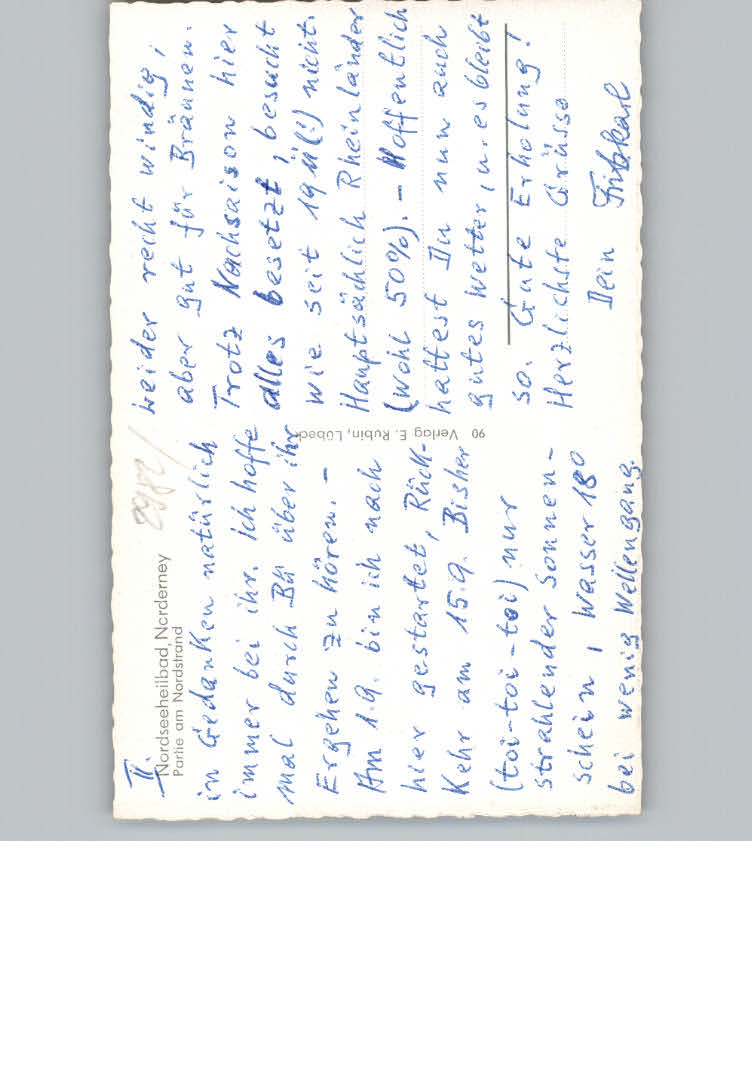 II.
Nordseeheilbad Norderney
Partie am Nordstrand
2982/
in Gedanken natürlich
immer bei ihr. Ich hoffe
mal durch BH über ihr
Ergehen zu hören. -
Am 1.9. bin ich nach
hier gestartet, Rück-
kehr am 15.9. Bisher
(toi-toi-toi) nur
strahlender Sonnen-
schein, Wasser 18°
bei wenig Wellengang.
90 Verlag E. Rubin, Lübeck
Leider recht windig,
aber gut für Bräunen.
Trotz Nachsaison hier
alles besetzt, besucht
wie seit 19 ü(!) nicht.
Hauptsächlich Rheinländer
(wohl 50%). - Hoffentlich
hattest Du nun auch
gutes Wetter, u. es bleibt
so. Gute Erholung!
Herzlichste Grüsse
Dein Fritzkarl